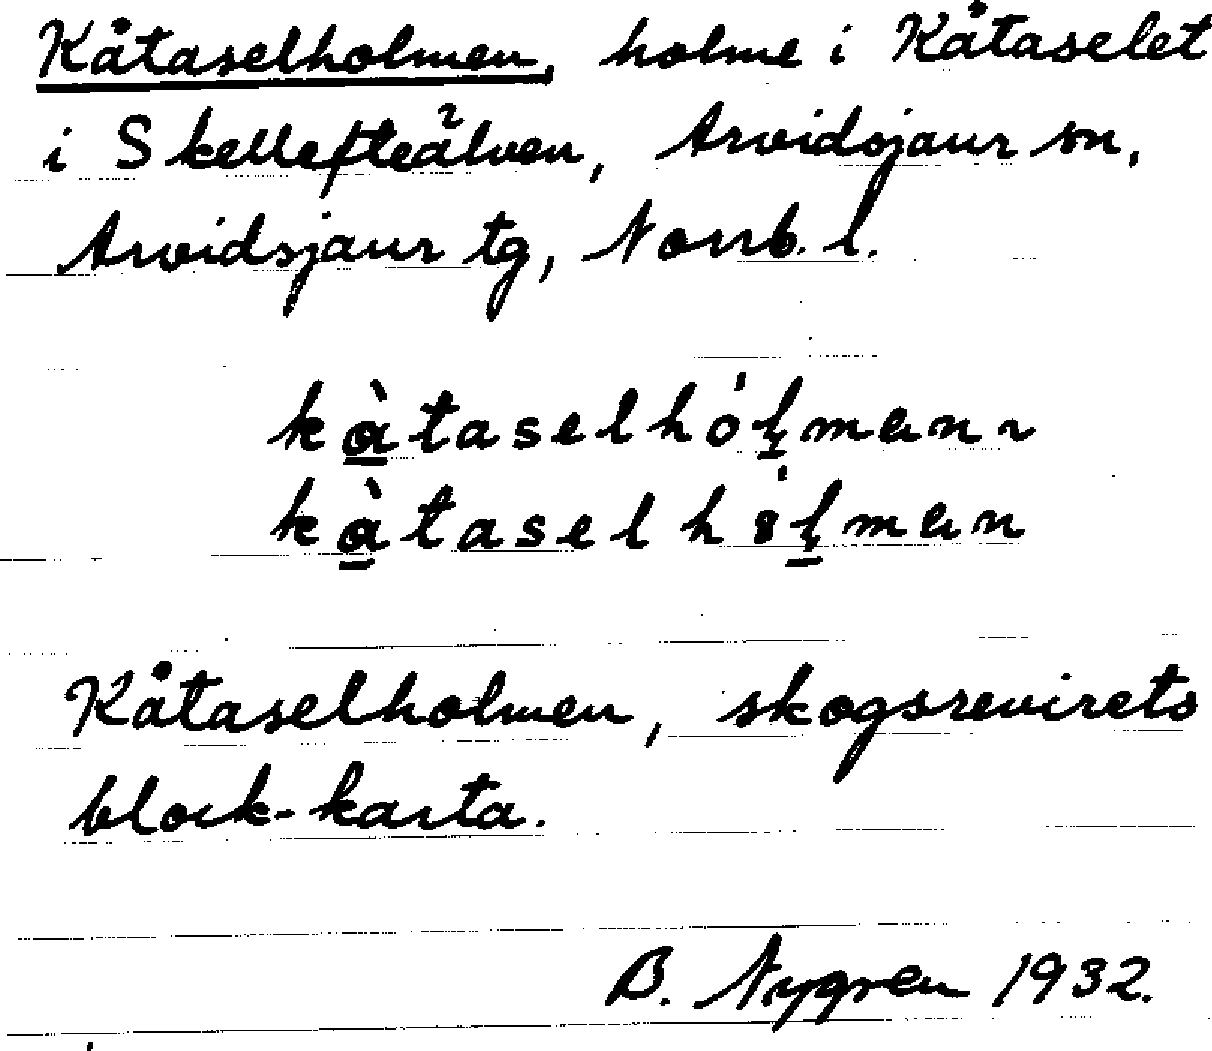 Kåtaselholmen, holme i Kåtaselet
i Skellefteälven, Arvidsjaur sn,
Arvidsjaur tg, Norrb. l.
kàtaselhólmann
kàtaselhólman
Kåtaselholmen, skogsrevirets
block-karta.
B. Nygren 1932.